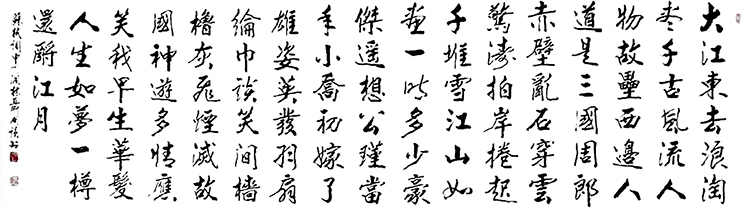 大江東去浪淘
盡千古風流人
物故壘西邊人
道是三國周郎
赤壁亂石穿雲
驚濤拍岸捲起
千堆雪江山如
畫一時多少豪
傑遙想公瑾當
年小喬初嫁了
雄姿英發羽扇
綸巾談笑間檣
櫓灰飛煙滅故
國神遊多情應
笑我早生華髮
人生如夢一樽
還酹江月
蘇軾詞